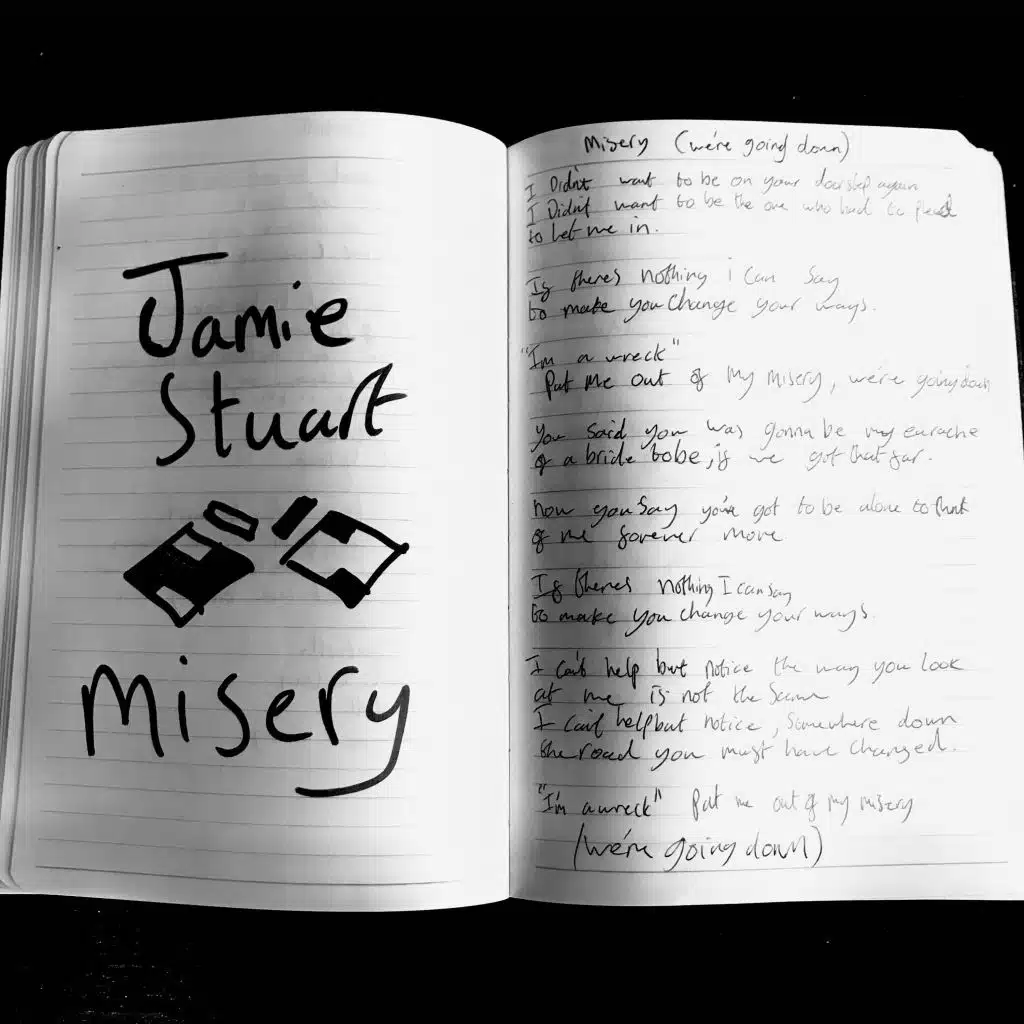 Jamie
Stuart
Misery
Misery (we're going down)
I Didn't want to be on your doorstep again
I Didn't want to be the one who had to plead
to let me in.
If there's nothing i can say
to make you change your ways.
"I'm a wreck"
Put me out of my misery, we're going down
You said you was gonna be my earache
of a bride to be, if we got that far.
Now you say you've got to be alone to think
of me forever more
If there's nothing I can say
to make you change your ways.
I can't help but notice the way you look
at me is not the same
I can't help but notice, somewhere down
the road you must have changed.
"I'm a wreck" Put me out of my misery
(we're going down)